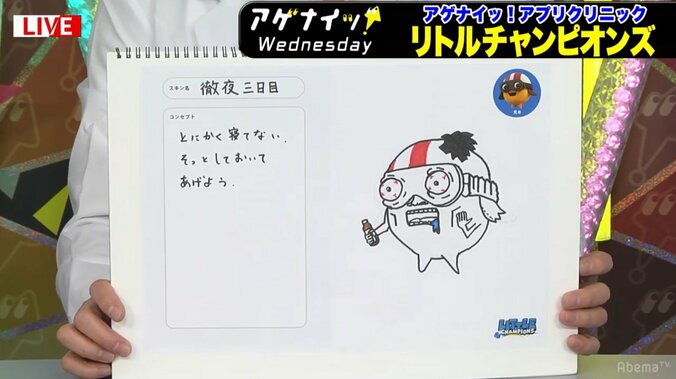 LIVE
アゲナイッ!
Wednesday
アゲナイッ!アプリクリニック
リトルチャンピオンズ
スキン名
徹夜三日目
コンセプト
とにかく寝てない.
そっとしておいて
あげよう.
LITTLE
CHAMPIONS
AbemaTV